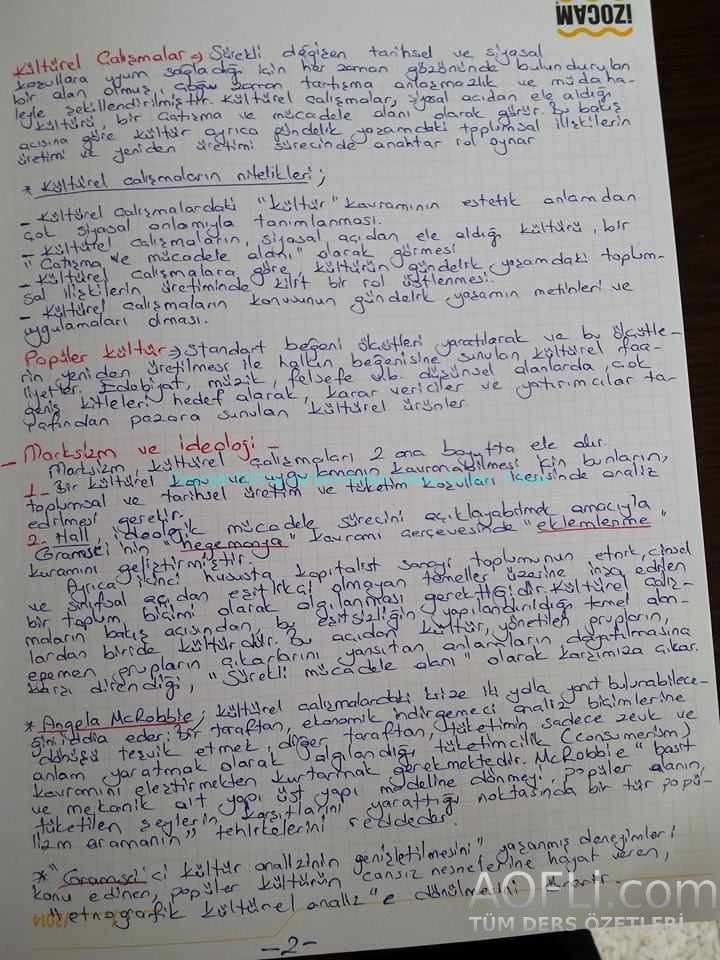 İZOCAM
Kültürel Çalışmalar => Sürekli değişen tarihsel ve siyasal
koşullara uyum sağladığı için her zaman gözönünde bulundurulan
bir alan olmuş, çoğu zaman tartışma anlaşmazlık ve müdaha-
leyle şekillendirilmiştir. Kültürel çalışmalar, siyasal açıdan ele aldığı
kültürü, bir çatışma ve mücadele alanı olarak görür. Bu bakış
açısına göre kültür ayrıca gündelik yaşamdaki toplumsal ilişkilerin
üretimi ve yeniden üretimi sürecinde anahtar rol oynar
* Kültürel çalışmaların nitelikleri;
- Kültürel çalışmalardaki "kültür" kavramının estetik anlamdan
çok siyasal anlamıyla tanımlanması.
- Kültürel çalışmaların, siyasal açıdan ele aldığı kültürü, bir
"Çatışma ve mücadele alanı" olarak görmesi
- Kültürel çalışmalara göre, kültürün gündelik yaşamdaki toplum-
sal ilişkilerin üretiminde kilit bir rol üstlenmesi.
- Kültürel çalışmaların konusunun gündelik yaşamın metinleri ve
uygulamaları olması.
Popüler kültür => Standart beğeni ölçütleri yaratılarak ve bu ölçütle-
rin yeniden üretilmesi ile halkın beğenisine sunulan kültürel faa-
liyetler. Edebiyat, müzik, felsefe v.b. düşünsel alanlarda, çok
geniş kitleleri hedef alarak, karar vericiler ve yatırımcılar ta-
rafından pazara sunulan kültürel ürünler.
- Marksizm ve ideoloji -
Marksizm, kültürel çalışmaları 2 ana boyutta ele alır.
1- Bir kültürel konu ve uygulamanın kavranabilmesi için bunların,
toplumsal ve tarihsel üretim ve tüketim koşulları içerisinde analiz
edilmesi gerekir.
2- Hall, ideolojik mücadele sürecini açıklayabilmek amacıyla
Gramsci'nin "hegemonya" kavramı çerçevesinde "eklemlenme"
kuramını geliştirmiştir.
Ayrıca ikinci hususta kapitalist sanayi toplumunun etnik, cinsel
ve sınıfsal açıdan eşitlikçi olmayan temeller üzerine inşa edilen
bir toplum biçimi olarak algılanması gerektiğidir. Kültürel çalış-
maların bakış açısından, bu eşitsizliğin yapılandırıldığı temel alan-
lardan biride kültürdür. Bu açıdan kültür, yönetilen grupların,
egemen grupların çıkarlarını yansıtan anlamların dayatılmasına
karşı direndiği, "Sürekli mücadele alanı" olarak karşımıza çıkar.
* Angela McRobbie; kültürel çalışmalardaki krize iki yolla yanıt bulunabilece-
ğini iddia eder; bir taraftan, ekonomik indirgemeci analiz biçimlerine
dönüşü teşvik etmek, diğer taraftan, tüketimin sadece zevk ve
anlam yaratmak olarak algılandığı tüketimcilik (consumerism)
kavramını eleştirmekten kurtarmak gerekmektedir. McRobbie "basit
ve mekanik alt yapı üst yapı modeline dönmeyi, popüler olanın,
tüketilen şeylerin karşıtlarını yarattığı noktasında bir tür popü-
lizm aramanın" tehlikelerini reddeder.
* "Gramsci'ci kültür analizinin genişletilmesini" yaşanmış deneyimleri
konu edinen, popüler kültürün cansız nesnelerine hayat veren,
"etnografik kültürel analiz"e dönülmesini önerir.
- 2 -
AOFLi.com
TÜM DERS ÖZETLERİ